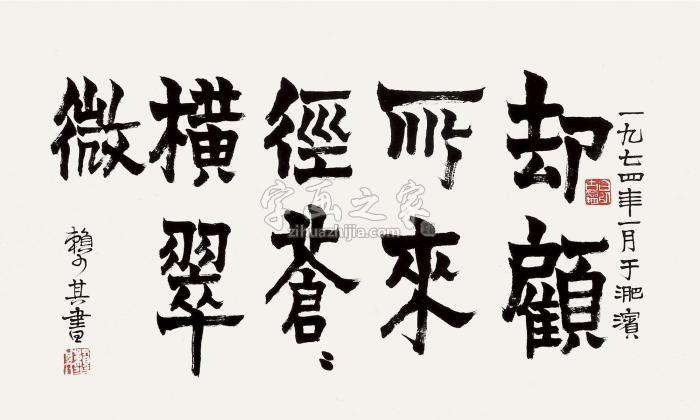 一九七四年一月于淝濱
却顧
所來
徑蒼〻
橫翠
微
賴少其書
字画之家
zihuazhijia.com